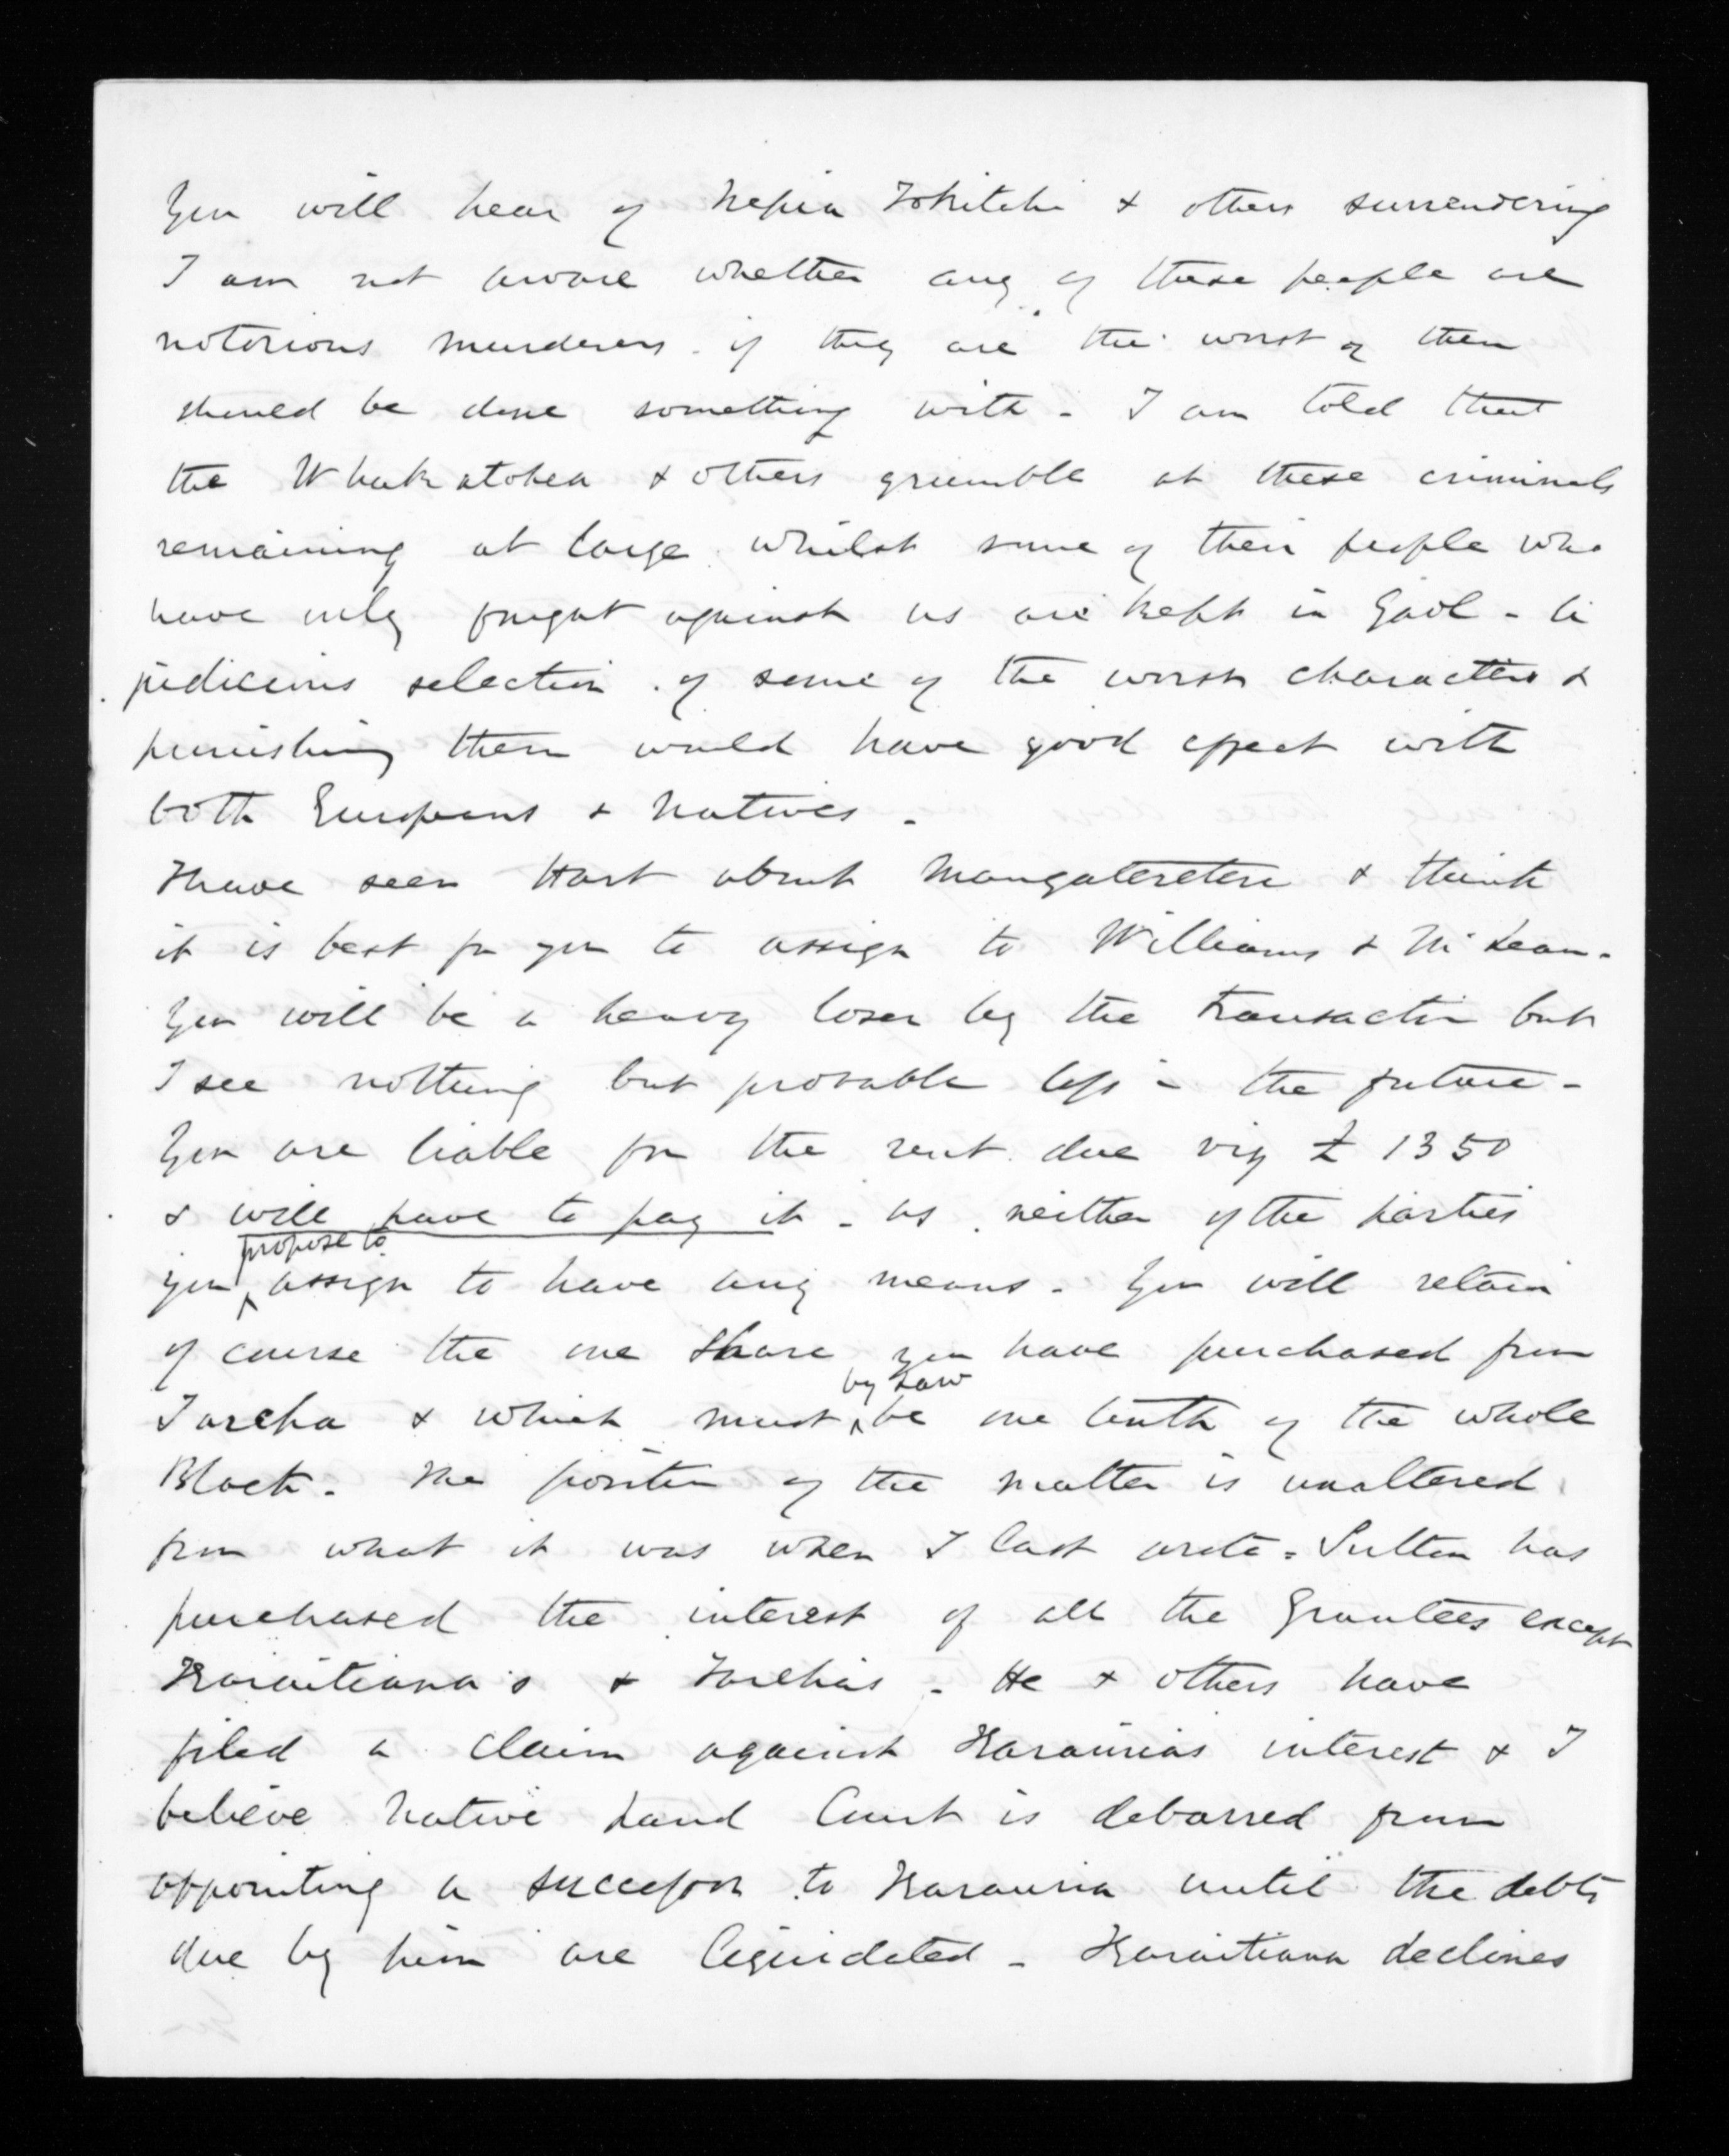 You will hear of Nepia Tokitahi & others surrendering
I am not aware whether any of these people are
notorious murderers - if they are the worst of them
should be done something with - I am told that
the Whakatohea & others grumble at these criminals
remaining at large whilst some of their people who
have only fought against us are kept in Gaol - A
judicious selection of some of the worst characters &
punishing them would have good effect with
both Europeans & Natives -
I have seen Hart about Mangateretere & think
it is best for you to assign to Williams & McLean -
You will be a heavy loser by the transaction but
I see nothing but probable loss in the future -
You are liable for the rent due viz £ 1350
& will have to pay it - as neither of the parties
propose to
you assign to have any means - You will retain
of course the one share you have purchased from
by Law
Tareha & which must be one tenth of the whole
Block - The position of the matter is unaltered
from what it was when I last wrote - Sutton has
purchased the interest of all the Grantees except
Karaitiana's & Tareha's - He & others have
filed a claim against Karauria's interest & I
believe Native Land Court is debarred from
appointing a successor to Karauria until the debts
due by him are liquidated - Karaitiana declines